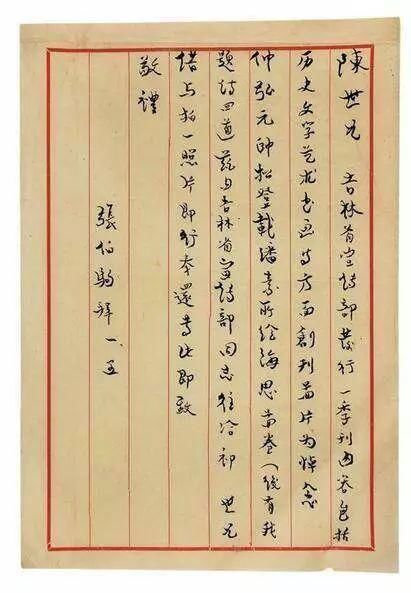 陳世兄 吉林省宣傳部發行一季刊内容包括
历史文学艺术书画等方面創刊圖片为悼念
仲弘元帥拟登載潘素所绘海思圖卷（後有我
題詩四首茲由吉林省宣傳部同志往洽祈 世兄
借与拍一照片即行奉還專此即致
敬禮
張伯駒拜 一、五